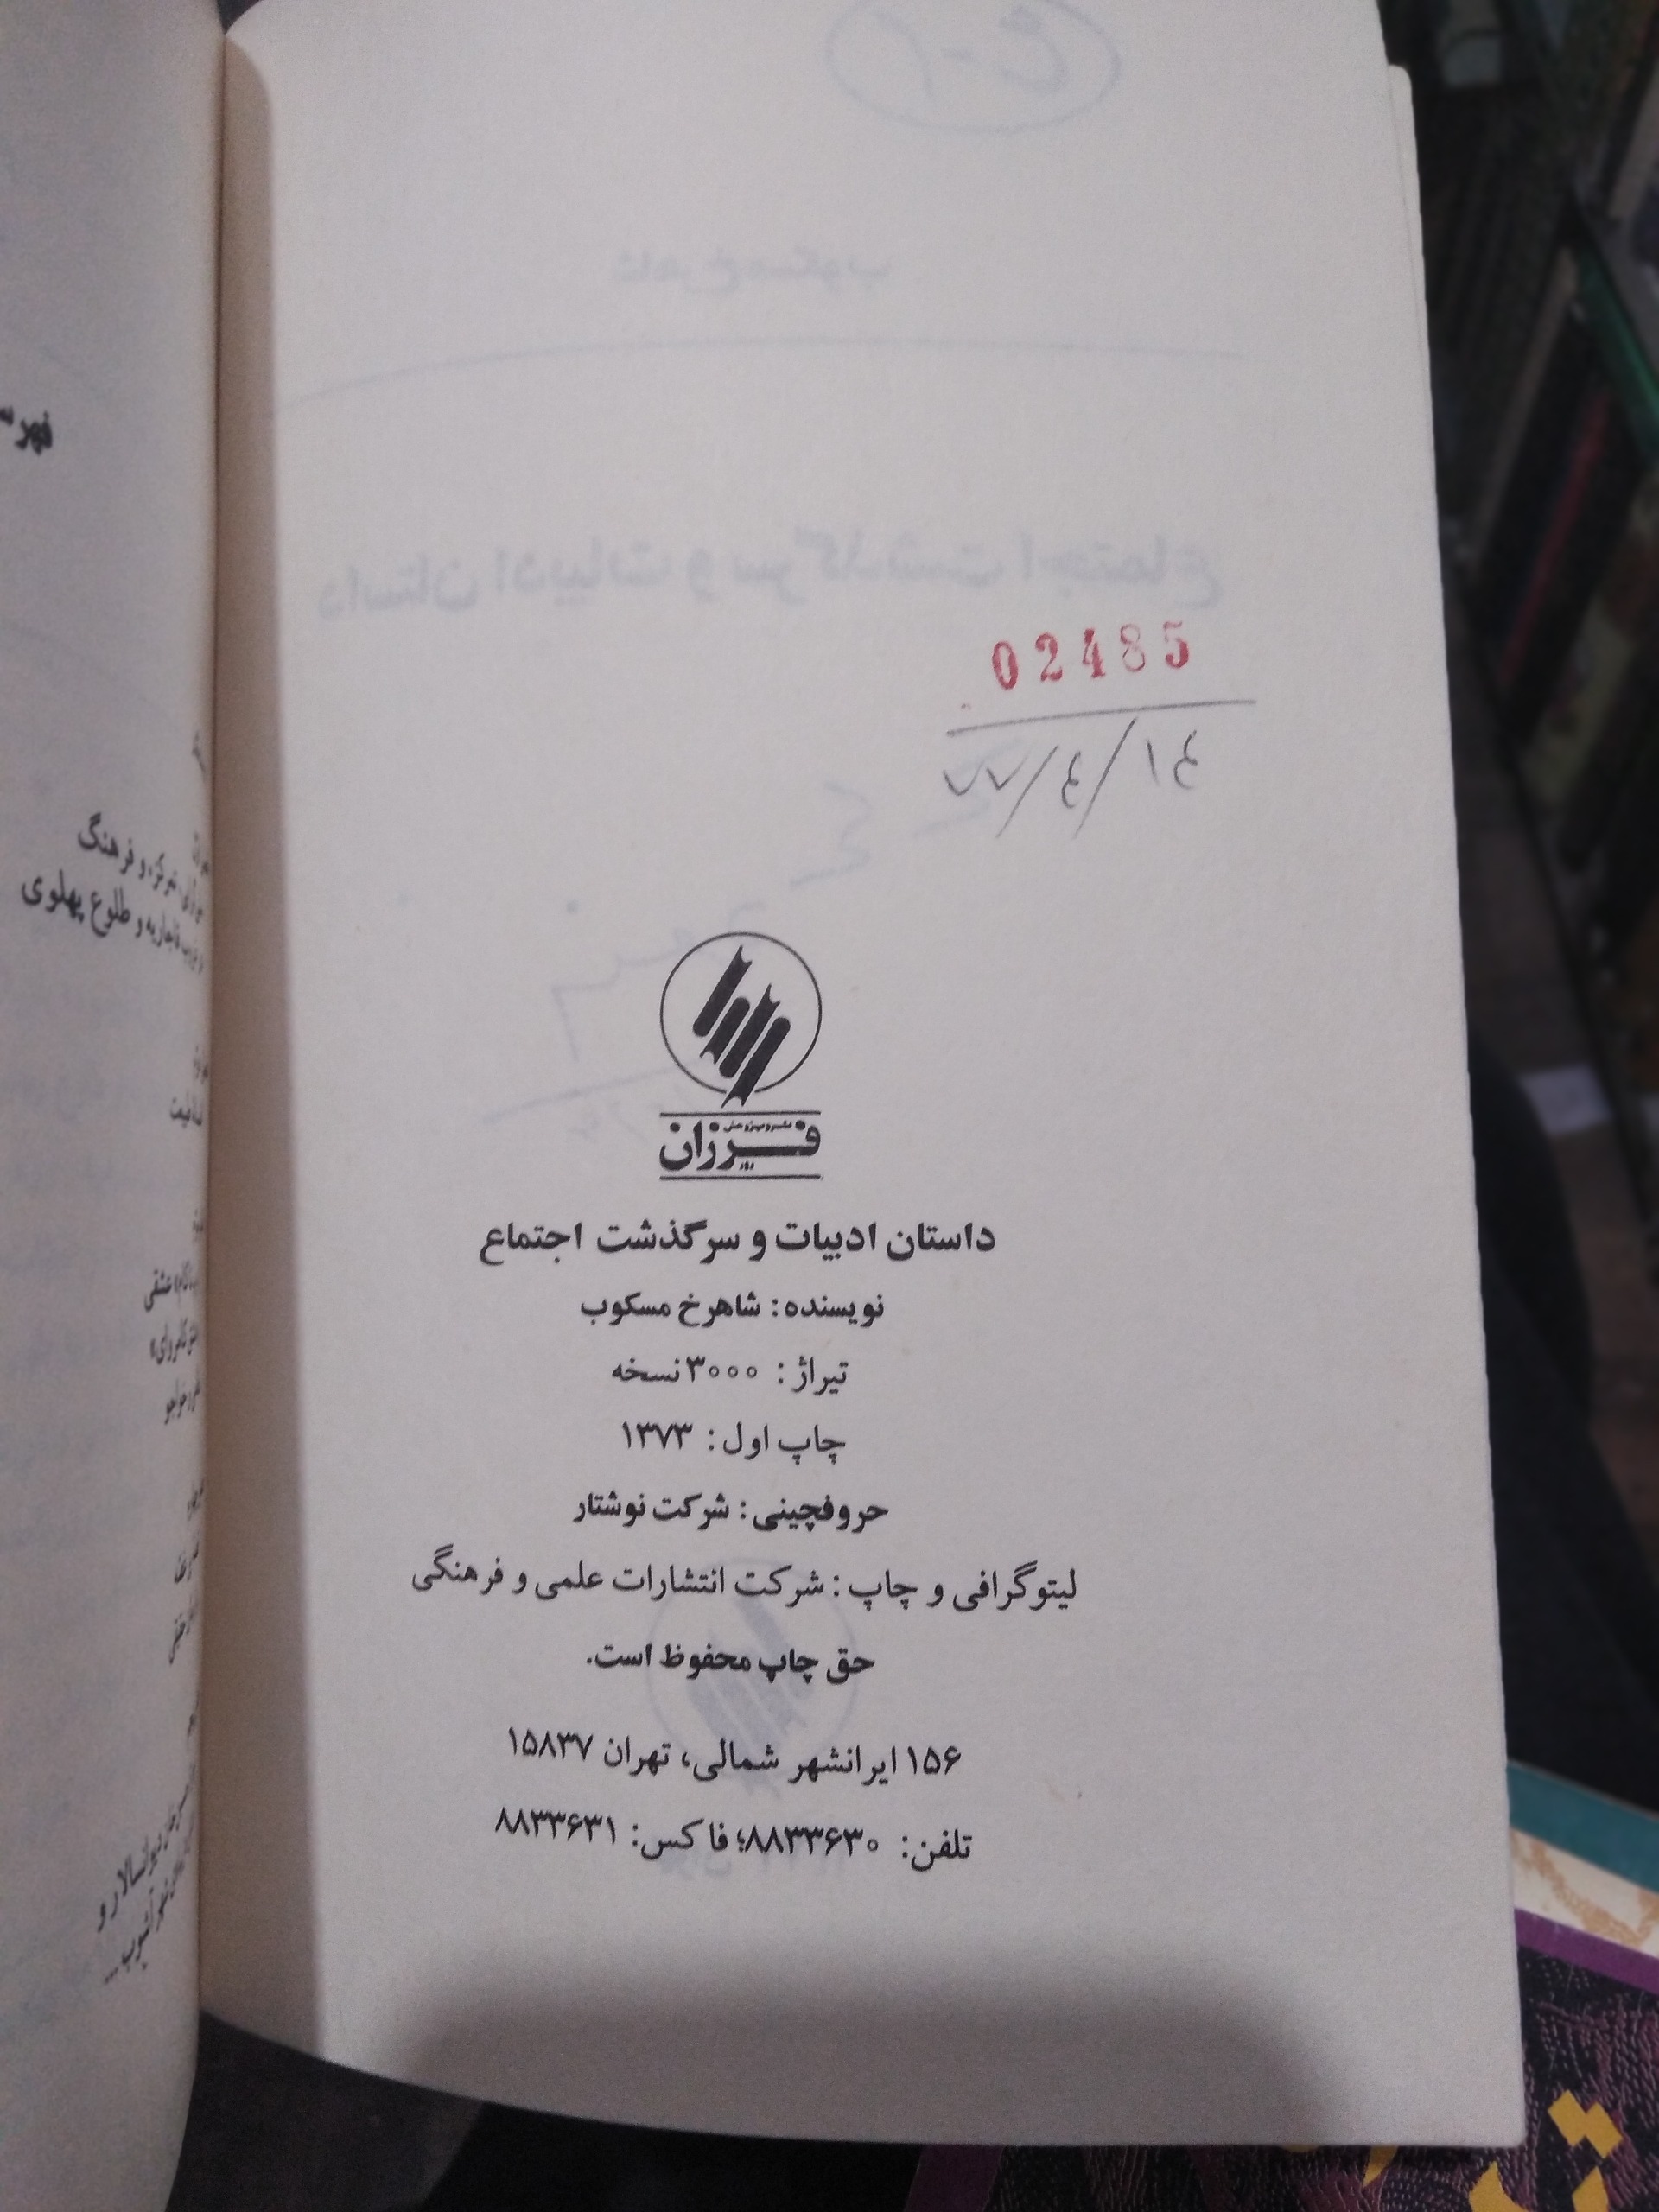 02485
فرزان
نشر و پژوهش
روز
داستان ادبیات و سرگذشت اجتماع
نویسنده: شاهرخ مسکوب
تیراژ: ۳۰۰۰ نسخه
چاپ اول: ۱۳۷۳
حروفچینی: شرکت نوشتار
لیتوگرافی و چاپ: شرکت انتشارات علمی و فرهنگی
حق چاپ محفوظ است.
۱۵۶ ایرانشهر شمالی، تهران ۱۵۸۳۷
تلفن: ۸۸۳۳۶۳۰؛ فاکس: ۸۸۳۳۶۳۱
و فرهنگ
و طلوع پهلوی
عشقی